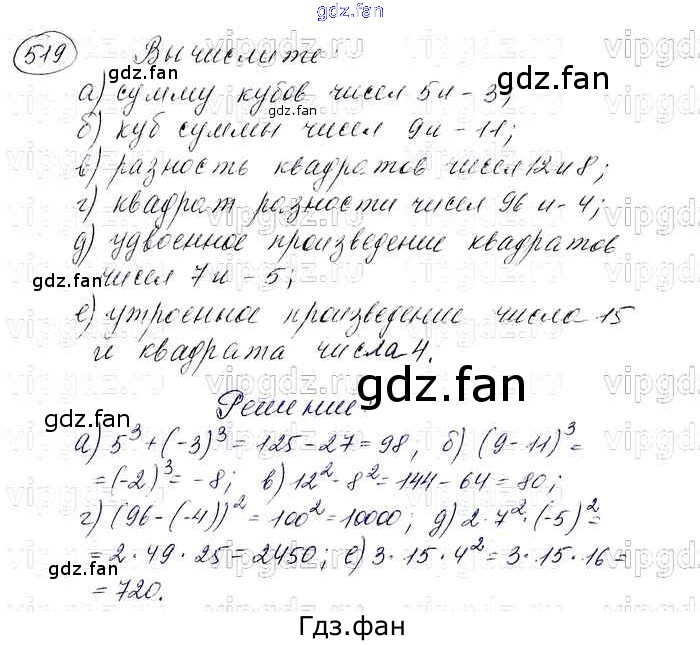 gdz.fan
519 Вычислите
а) сумму кубов чисел 5 и -3;
б) куб суммы чисел 9 и -11;
в) разность квадратов чисел 12 и 8;
г) квадрат разности чисел 96 и -4;
д) удвоенное произведение квадратов
чисел 7 и -5;
е) утроенное произведение числа 15
и квадрата числа 4.
gdz.fan
Решение
а) 5³ + (-3)³ = 125 - 27 = 98; б) (9 - 11)³ =
= (-2)³ = -8; в) 12² - 8² = 144 - 64 = 80;
г) (96 - (-4))² = 100² = 10000; д) 2 · 7² · (-5)² =
= 2 · 49 · 25 = 2450; е) 3 · 15 · 4² = 3 · 15 · 16 =
= 720.
Гдз.фан